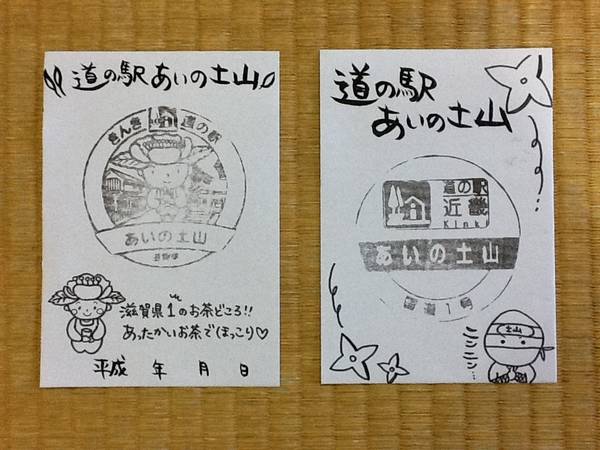 道の駅あいの土山
きんき 道の駅
あいの土山
滋賀県
滋賀県1のお茶どころ!!
あったかいお茶でほっこり♡
平成 年 月 日
道の駅
あいの土山
道の駅
近畿
Kinki
あいの土山
国道1号
土山
ニンニン…